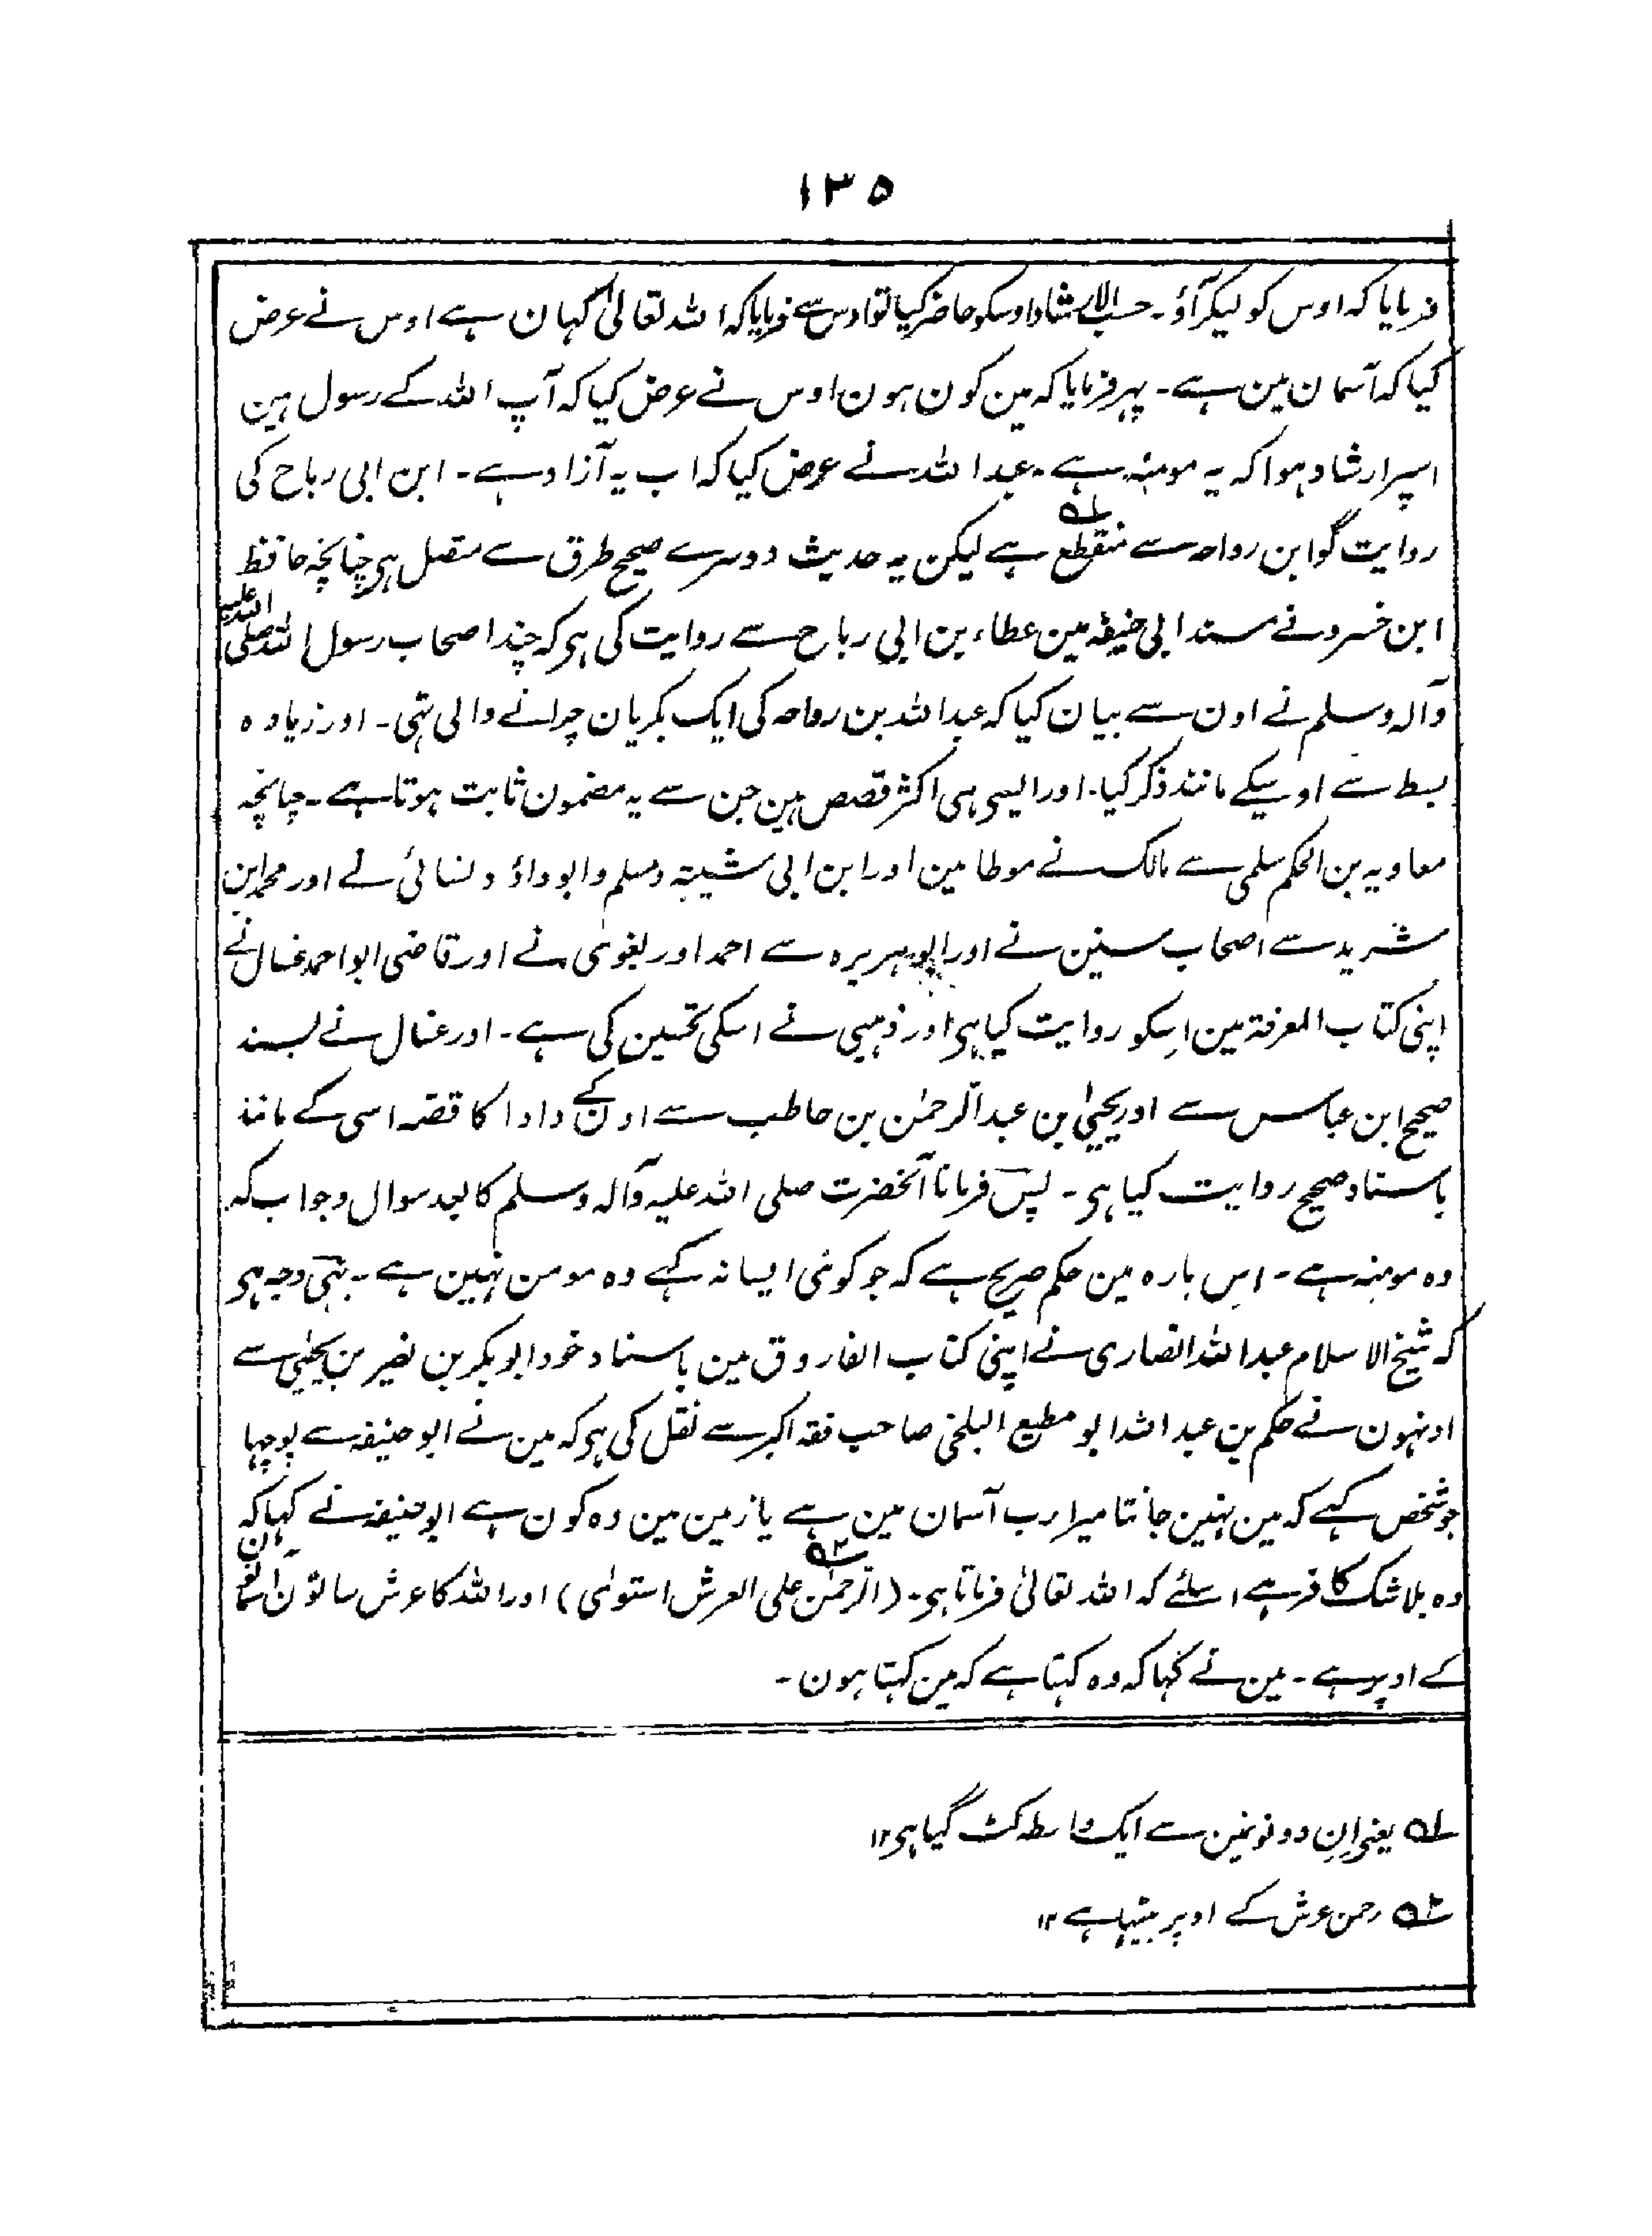 ۱۳۵
فرمایا کہ اوس کو لیکر آؤ۔ حسب الارشاد اوسکو حاضر کیا تو اوس سے فرمایا کہ اللہ تعالیٰ کہان ہے اوس نے عرض
کیا کہ آسمان مین ہے۔ پہر فرمایا کہ مین کون ہون اوس نے عرض کیا کہ آپ اللہ کے رسول ہین
اسپر ارشاد ہوا کہ یہ مومنہ ہے۔ عبد اللہ نے عرض کیا کہ اب یہ آزاد ہے۔ ابن ابی رباح کی
روایت گو ابن رواحہ سے منقطع ؂۱ ہے لیکن یہ حدیث دوسرے صحیح طرق سے متصل ہی چنانچہ حافظ
ابن خسرو نے مسند ابی حنیفہ مین عطاء بن ابی رباح سے روایت کی ہی کہ چند اصحاب رسول اللہ صلی اللہ علیہ
وآلہ وسلم نے اون سے بیان کیا کہ عبد اللہ بن رواحہ کی ایک بکریان چرانے والی تہی۔ اور زیادہ
بسط سے اوسیکے مانند ذکر کیا۔ اور ایسی ہی اکثر قصص ہین جن سے یہ مضمون ثابت ہوتا ہے۔ چنانچہ
معاویہ بن الحکم سلمی سے مالک نے موطا مین اور ابن ابی شیبہ و مسلم وابوداؤد ونسائی نے اور محمد ابن
شرید سے اصحاب سنین نے اور ابوہریرہ سے احمد اور بغوی نے اور قاضی ابو احمد غسال نے
اپنی کتاب المعرفۃ مین اسکو روایت کیا ہی اور ذہبی نے اسکی تحسین کی ہے۔ اور غسال نے بسند
صحیح ابن عباس سے اور یحییٰ بن عبد الرحمٰن بن حاطب سے اون کے دادا کا قصہ اسی کے مانند
باسناد صحیح روایت کیا ہی۔ پس فرمانا آنحضرت صلی اللہ علیہ وآلہ وسلم کا بعد سوال وجواب کہ
وہ مومنہ ہے۔ اس بارہ مین حکم صریح ہے کہ جو کوئی ایسا نہ کہے وہ مومن نہین ہے۔ یہی وجہ ہی
کہ شیخ الاسلام عبد اللہ انصاری نے اپنی کتاب الفاروق مین باسناد خود ابوبکر بن نصیر بن یحییٰ سے
اونہون نے حکم بن عبد اللہ ابو مطیع البلخی صاحب فقہ اکبر سے نقل کی ہی کہ مین نے ابو حنیفہ سے پوچہا
جو شخص کہے کہ مین نہین جانتا میرا رب آسمان مین ہے یا زمین مین وہ کون ہے ابو حنیفہ نے کہا کہ
وہ بلاشک کافر ہے اسلئے کہ اللہ تعالیٰ فرماتا ہی۔ (الرحمٰن ؂۲ علی العرش استویٰ) اور اللہ کا عرش ساتون آسمانون
کے اوپر ہے۔ مین نے کہا کہ وہ کہتا ہے کہ مین کہتا ہون۔
؂۱ یعنی ان دونونمین سے ایک واسطہ کٹ گیا ہی ۱۲
؂۲ رحمن عرش کے اوپر بیٹہا ہے ۱۲